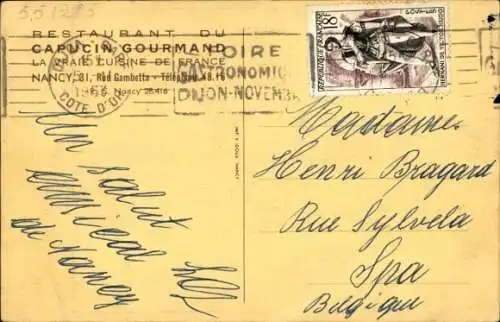 5512/5
RESTAURANT DU
CAPUCIN GOURMAND
LA VRAIE CUISINE DE FRANCE
NANCY, 81, Rue Gambetta - Téléphone
Nancy
CÔTE D'OR
FOIRE
GASTRONOMIQUE
DIJON-NOVEMBRE
RÉPUBLIQUE FRANÇAISE
POSTES
8F
IMP. E. GOULE, NANCY
Un salut
amical
de Nancy
Madame
Henri Bragard
Rue Sylvela
Spa
Belgique